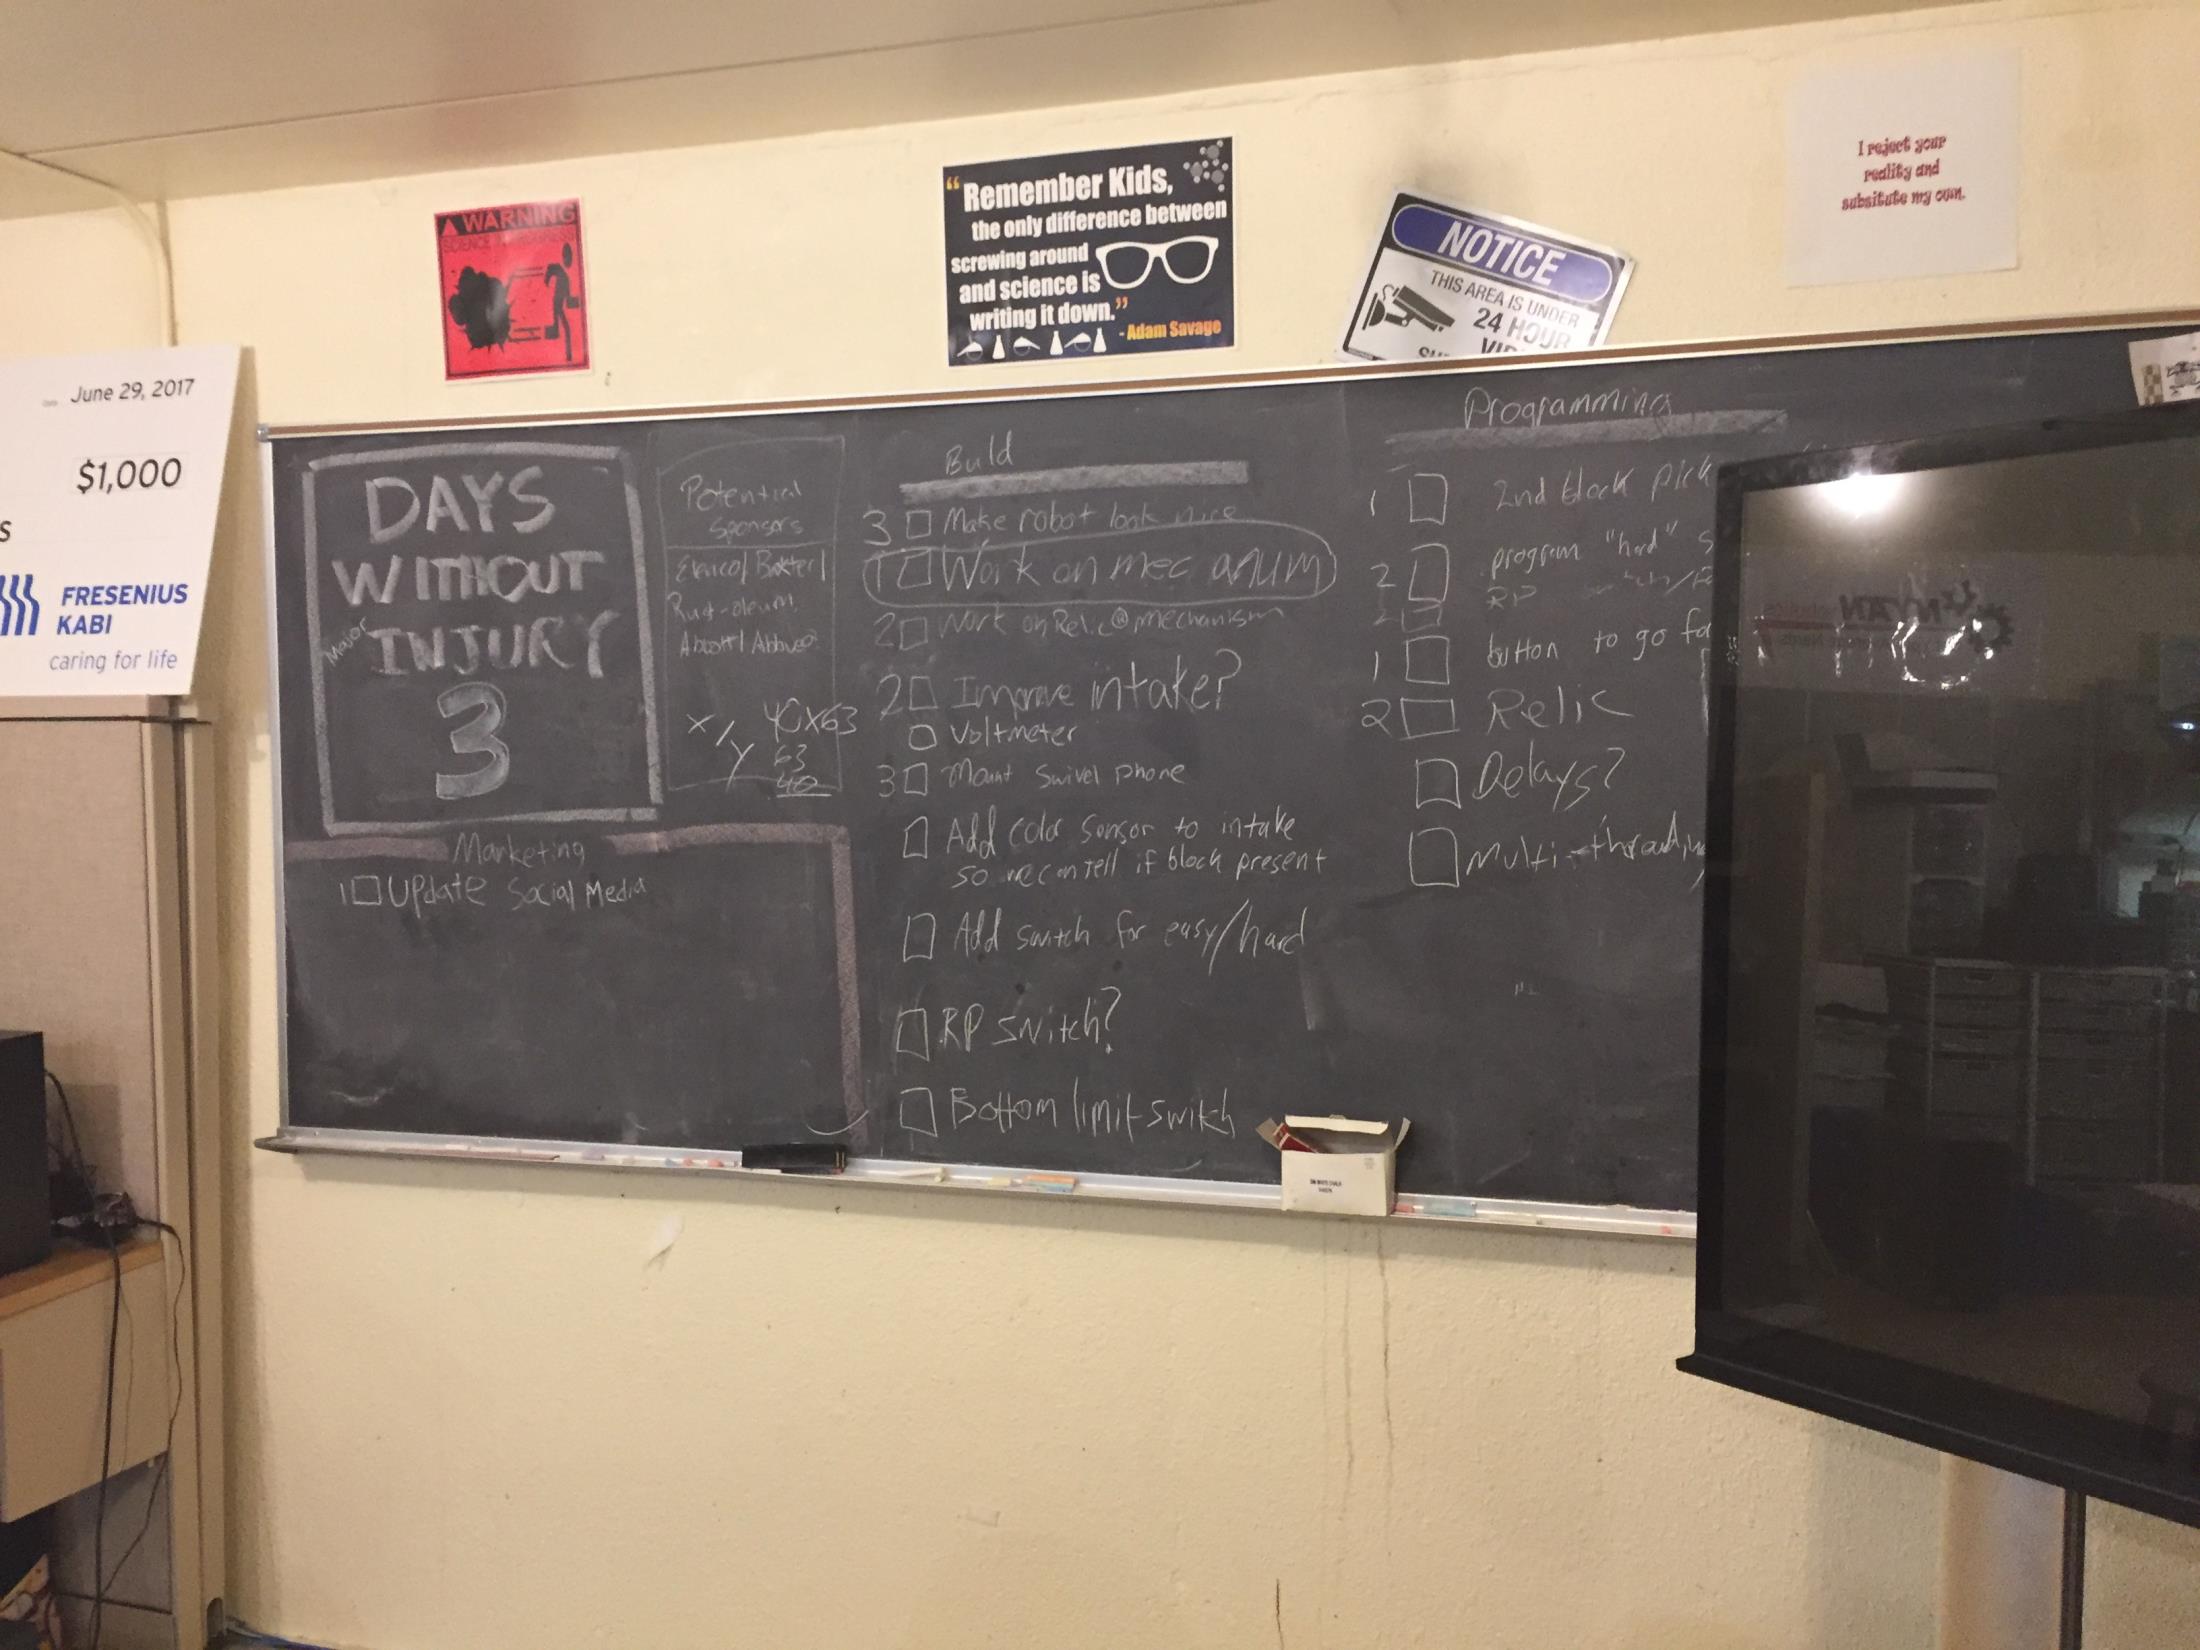 WARNING
SCIENCE
"Remember Kids,
the only difference between
screwing around
and science is
writing it down."
- Adam Savage
NOTICE
THIS AREA IS UNDER
24 HOUR
I reject your
reality and
subsitute my own.
June 29, 2017
$1,000
S
FRESENIUS
KABI
caring for life
DAYS
WITHOUT
Major INJURY
3
Potential
Sponsors
Rust-oleum
Abbott/
X/Y 40x63
63
40
Marketing
1 Update Social Media
Build
3 Make robot look nice
1 Work on mecanum
2 Work on Relic mechanism
2 Improve intake?
Voltmeter
3 Mount Swivel Phone
Add color sensor to intake
so we can tell if block present
Add switch for easy/hard
RP switch?
Bottom limit switch
Programming
1 2nd block pick
2 program "hard" s
2 RP
1 button to go fo
2 Relic
Delays?
Multi-threading